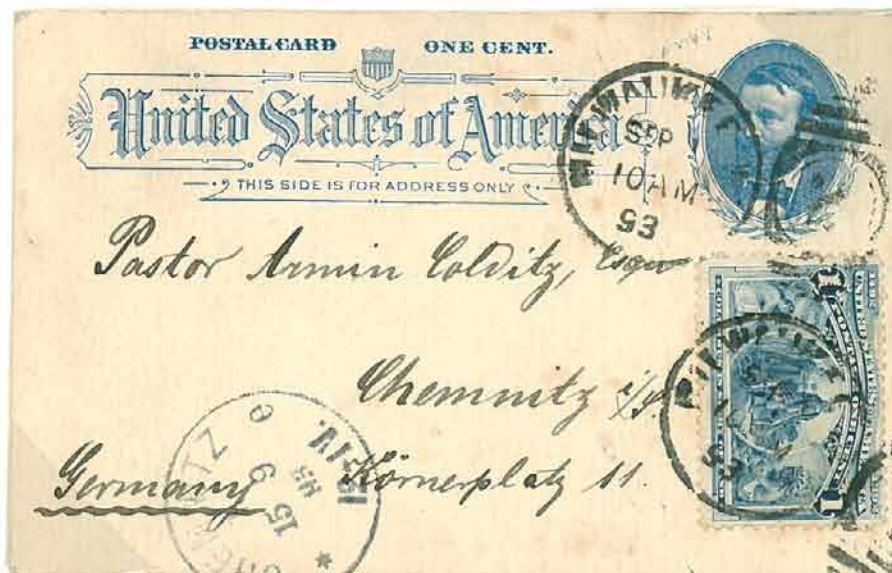 POSTAL CARD ONE CENT.
United States of America
THIS SIDE IS FOR ADDRESS ONLY
MILWAUKEE
SEP
10 AM
93
Pastor Armin Colditz, Esqu
Chemnitz i/S.
Germany Körnerplatz 11.
15 9
93
1
1